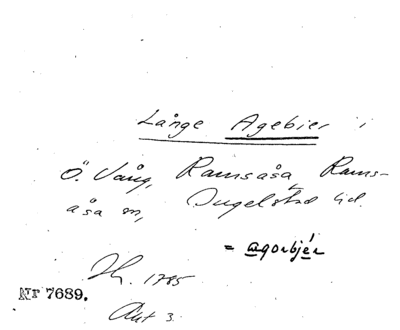 Långe Agebier i
Ö. Vång, Ramsåsa, Rams-
åsa sn, Ingelstad hd.
= agorbjér
1785
Nr 7689.
Akt 3.